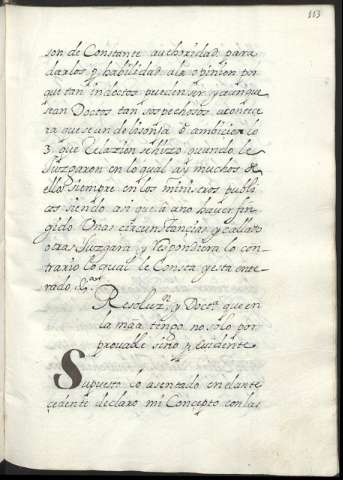 113
son de Constante authoridad para
darlos, o habilidad a la opinion por
que tan indoctos pueden ser y aunque
sean Doctos tan sospechosos, aconteçe
ra que sean de losonia o ambicion lo
3. que Relazion se hizo quando le
Juzgaron en lo qual ay muchos de
ellos siempre en los ministros publi
cos siendo asi que a no haver fin
gido Unas circunstancias, y callado
otras Juzgara, y Respondiera lo con
trario lo qual le Consta y esta ente
rado &.
Resoluz.n y Doct.a que en
la mat.a tengo no solo por
provable sino evidente
Supuesto lo asentado en el ante
çedente declaro mi Concepto con las